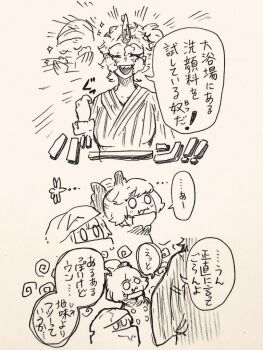 大浴場にある
洗顔料を
試している奴だ!
バン!!
…あー…
……うん
正直に言ってごらんよ
えっと
あるある
っぽいけど
ウン…
地味よりフツーって
いうか…